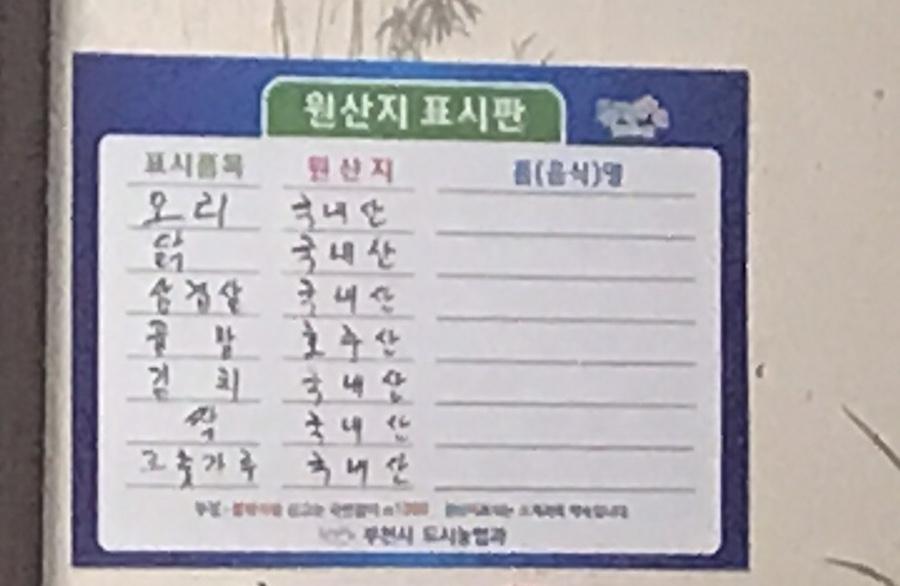 원산지 표시판
표시품목 원산지 품(음식)명
오리 국내산
닭 국내산
삼겹살 국내산
호주산
김치 국내산
쌀 국내산
고춧가루 국내산
부천시 도시농업과